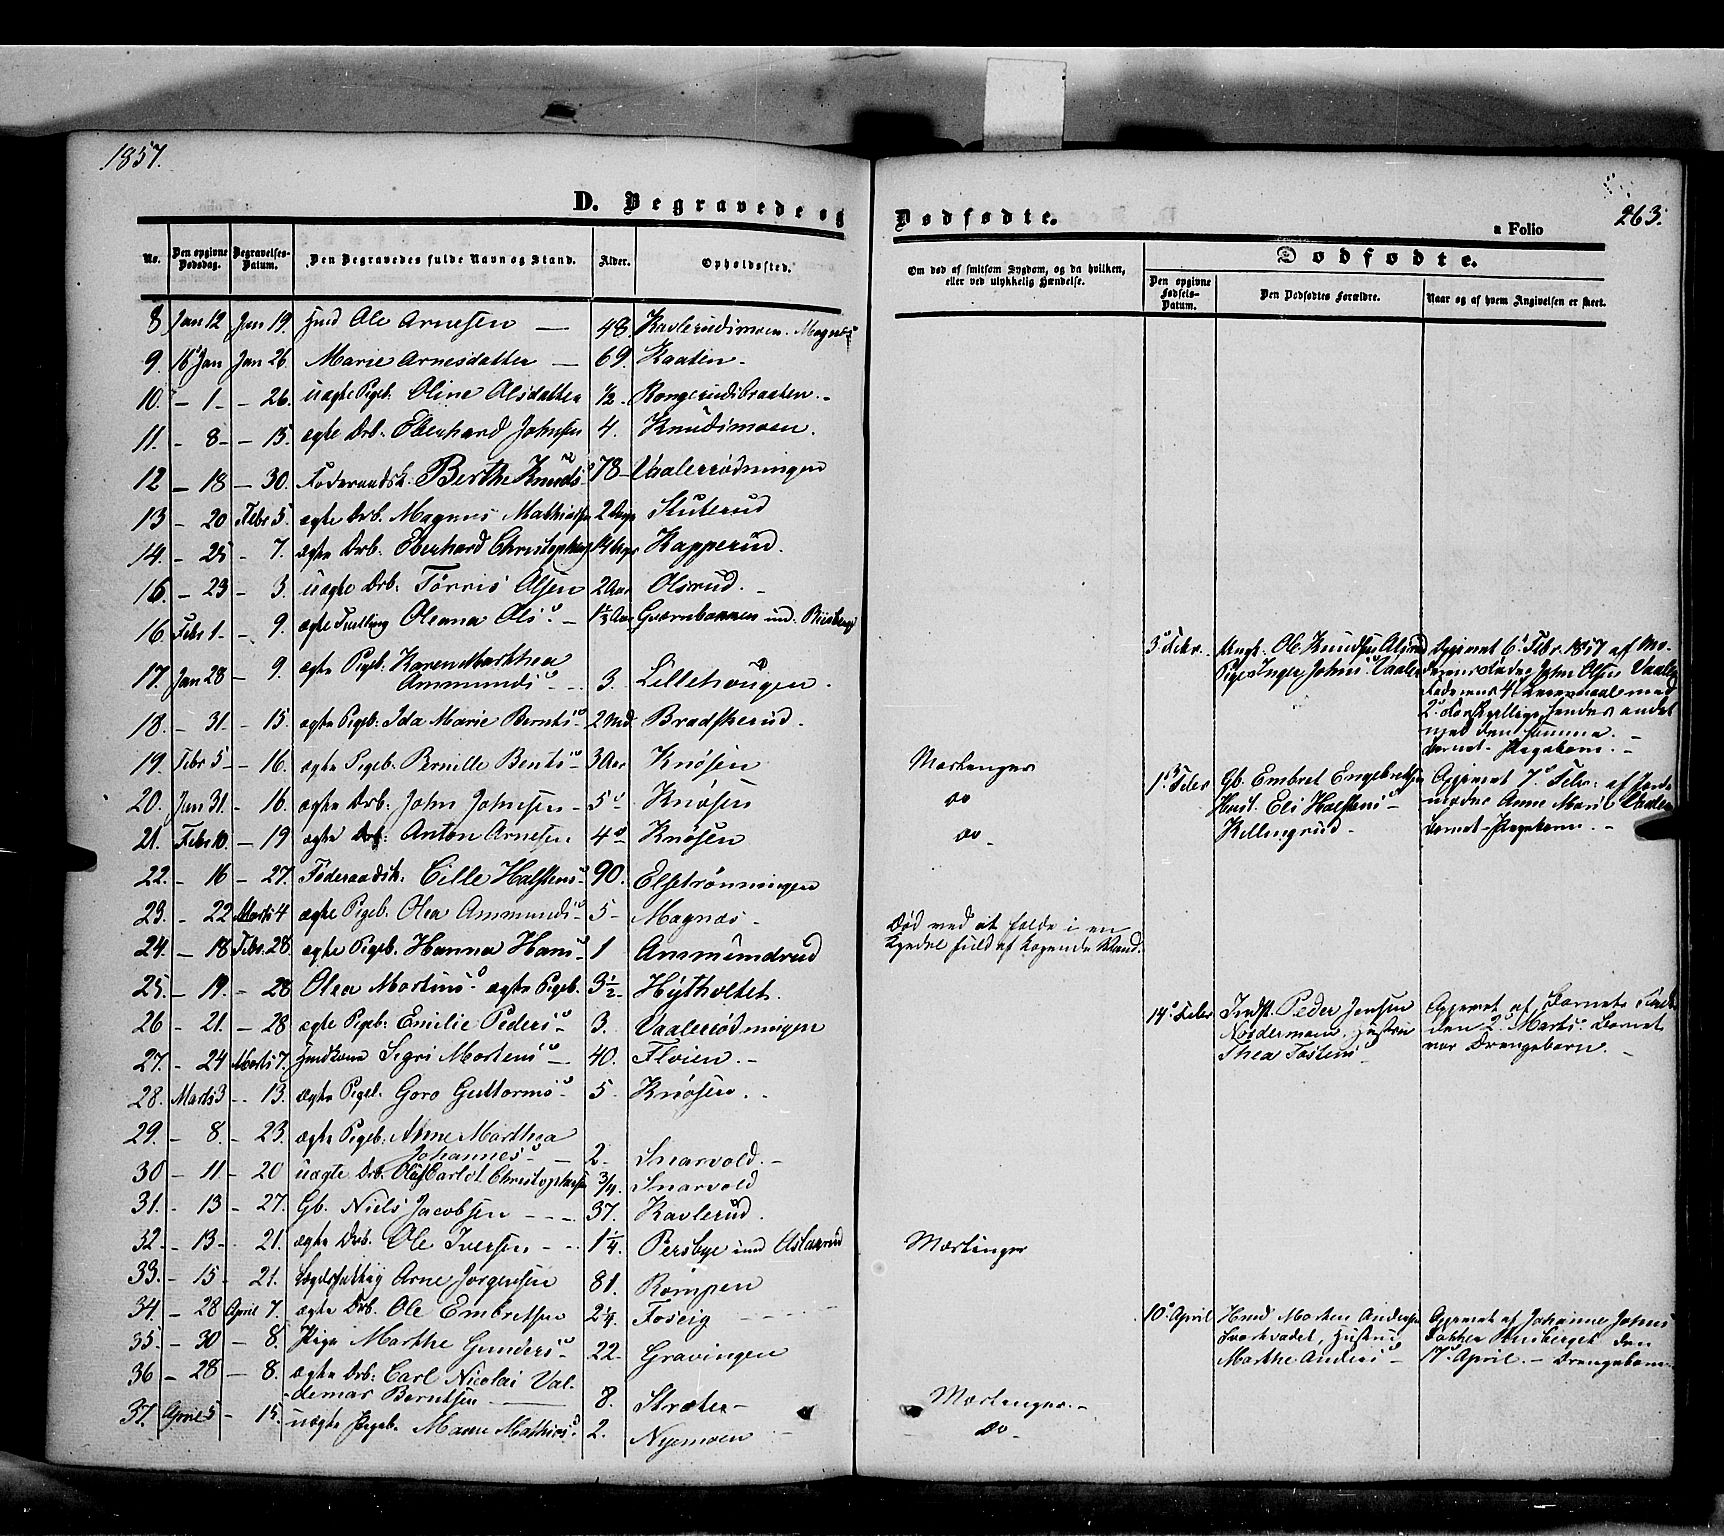 1857.
263.
D. Begravede og Dødfødte.
a Folio
No. Den opgivne Dødsdag. Begravelses-Datum. Den Begravedes fulde Navn og Stand. Alder. Opholdssted.
Om død af smitsom Sygdom, og da hvilken, eller ved ulykkelig Hændelse.
Dødfødte.
Den opgivne Fødsels-Datum. Den Dødfødtes Forældre. Naar og af hvem Angivelsen er skeet.
8 Jan 12 Jan 19. Ole Arnesen — 48. Kavlerudsmoen. Magnæs
9. 16 Jan Jan 26. Marie Arnesdatter — 69. Kaaten
10. - 1 - - 26. uægte Pigeb. Oline Olsdatter ½ Rongerudsbraaten
11. - 8 - - 15. ægte Drb. Eberhard Johnsen 4. Knudsmoen.
12 - 18 - 30. Føderaadsk. Berthe Knudsd 78 - Vaalerrødningen
13 - 20 Febr 5. ægte Drb. Magnus Mathiasen 2 Stuterud
14. - 25 - 7. ægte Drb. Eberhard Christophers 14 Kapperud.
16. - 23 - 3. uægte Drb. Tørris Olsen 2 Aar Olsrud.
16. Febr 1 - - 9. ægte Tvilling Oleana Olsd 1½ Aar
17. Jan 28 - 9. ægte Pigeb. Karen Marthea
Ammundsd 3. Lillehougen.
18. - 31. - 15. ægte Pigeb. Ida Marie Berntsd 2 Md. Bradskerud.
19. Febr 5 - - 16. ægte Pigeb. Bernille Bentsd 3 Aar Knøsen Mæslinger
20. Jan 31 - 16. ægte Drb. John Johnsen - 5 Knøsen do
21. Febr 10. - 19 ægte Drb. Anton Arnesen. 4 Knøsen do
22. - 16 - 27. Føderaadsk. Cille Halstensd 90. Elsetrønningen
23. - 22 Marts 4 ægte Pigeb. Olea Ammundsd 5 - Magnæs -
24. - 18 Febr. 28. ægte Pigeb. Hanna Hansd 1 Ammundrud
Død ved at falde i en
Kjedel fuld af kogende Vand.
25. - 19. - 28 Olea Martinsd ægte Pigeb. 3½ Hytholtet.
26 - 21. - 28 ægte Pigeb. Emilie Pedersd 3. Vaalerrødningen
27. - 24 Marts 7. Sigri Mortensd 40. Floien. -
28. Marts 3 - 13. ægte Pigeb. Goro Guttormsd 5. Knøsen.
29. - 8. - 23. ægte Pigeb. Anne Marthea
Johannesd 2. Snarvold. -
30 - 11 - 20 uægte Drb. Oluf Carlot Christophersen ¾. Snarvold
31. - 13 - 27. Gb. Niels Jacobsen - - - 37. Kavlerud.
32. - 13 - 21. ægte Drb. Ole Iversen 1¼. Persbye und Aslaxrud Mæslinger
33. - 15 - 21. Arne Jørgensen 81. Rompen
34. - 28 April 7. ægte Drb. Ole Embretsen 2¼ Foseig
35. - 30 - 8. Pige Marthe Gundersd 22. Gravingen
36 - 28 - 8. ægte Drb. Carl Nicolai Val-
-demar Berntsen 8. Stræte - Mæslinger. -
37. April 5 - 15. uægte Pigeb. Maren Mathiasd 2. Nyemoen do -
3 Febr. Ungk. Ole Knudsen Olsrud
Pige Inger Johnsd Vaaler
Opgivet 6 Febr. 1857 af Mo-
derens Fader John Olsen Vaaler
Faderens 4de Leiermaal med
2 forskjellige, hendes andet
med den samme. -
Barnet Pigebarn. -
1. Febr Gb. Embret Engebretsen
Hust. Eli Halstensd
Killingrud -
Opgivet 7 Febr. af Jorde-
moder Anne Marie Vaaler
Barnet Pigebarn. -
14 Febr Indst. Peder Jensen
Nordermoen. Hustru
Thea Tostensd
Opgivet af Barnets Fader
den 2 Marts. Barnet
var Drengebarn. -
10 April Hmd Morten Andersen
Svartvadet, Hustru
Marthe Andersd -
Opgivet af Johanne Johnsd
den
17 April. - Drengebarn